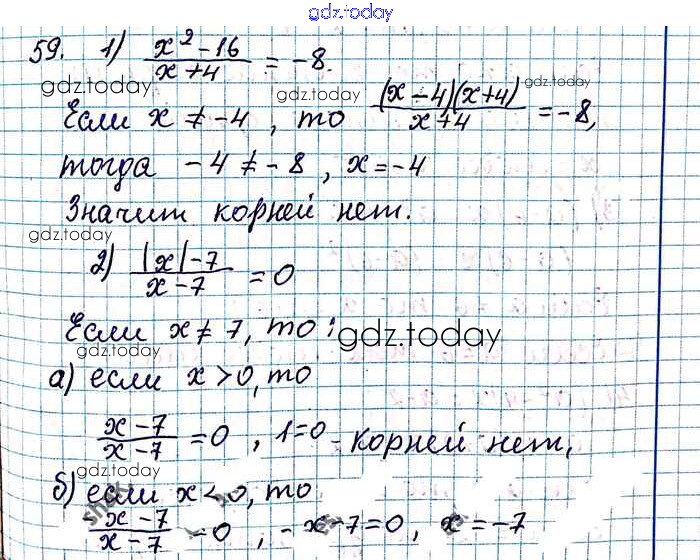 gdz.today
59. 1) (x² - 16)/(x + 4) = -8.
gdz.today gdz.today gdz.today
Если x ≠ -4, то ((x - 4)(x + 4))/(x + 4) = -8,
тогда -4 ≠ -8, x = -4
Значит корней нет.
gdz.today
2) (|x| - 7)/(x - 7) = 0
Если x ≠ 7, то:
gdz.today gdz.today
а) если x > 0, то
(x - 7)/(x - 7) = 0, 1 = 0 - корней нет,
gdz.today
б) если x < 0, то
(-x - 7)/(x - 7) = 0, -x - 7 = 0, x = -7